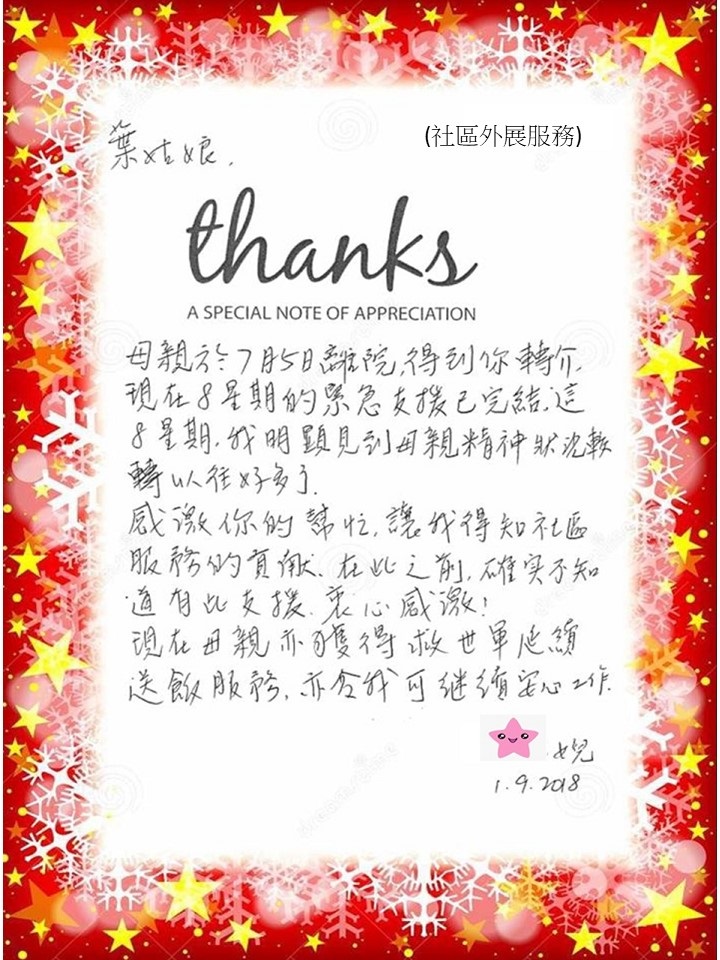 (社區外展服務)
葉姑娘,
thanks
A SPECIAL NOTE OF APPRECIATION
母親於7月5日離院,得到你轉介,
現在8星期的緊急支援已完結.這
8星期,我明顯見到母親精神狀況較
轉以往好多了.
感激你的幫忙,讓我得知社區
服務的貢献.在此之前,確实不知
道有此支援.衷心感激!
現在母親亦獲得救世軍延續
送飯服務,亦令我可继續安心工作.
女兒
1.9.2018